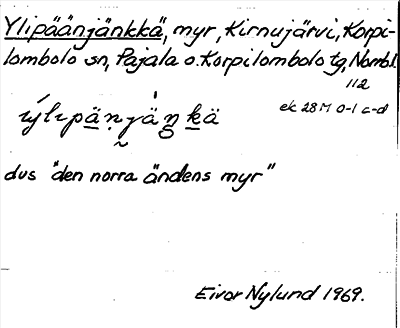 Ylipäänjänkkä, myr, Kirnujärvi, Korpi-
lombolo sn, Pajala o. Korpilombolo tg, Nombl.
112
ek 28 M 0-1 c-d
ýlιpä̱ṇjä̀ŋ̱ḵä
dvs "den norra ändens myr"
Eivor Nylund 1969.